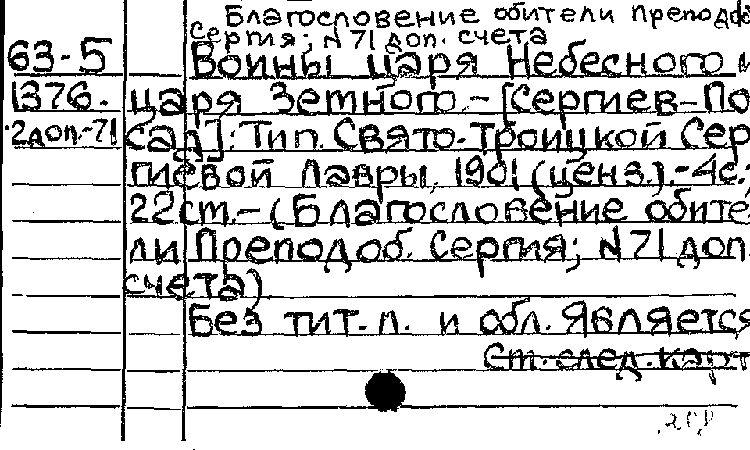 Благословение обители преподоб
Сергия; N 71 доп. счета
63-5 Воины царя Небесного и
1376. царя Земного.-[Сергиев-По
2доп-71 сад]: Тип. Свято-Троицкой Сер
гиевой Лавры, 1901 (ценз.).-4с.;
22см.-(Благословение обите
ли Преподоб. Сергия; N 71 доп.
счета)
Без тит. л. и обл. Является
См. след. карт